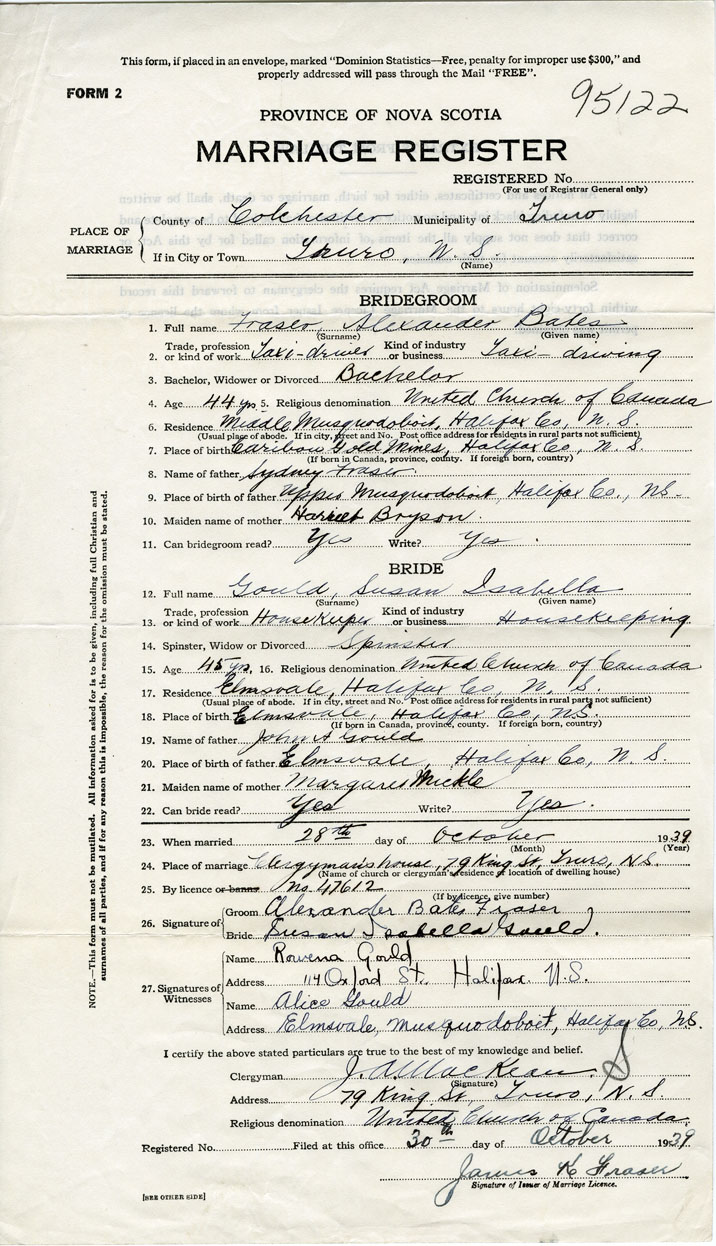 This form, if placed in an envelope, marked "Dominion Statistics—Free, penalty for improper use $300," and
properly addressed will pass through the Mail "FREE".
FORM 2
95122
PROVINCE OF NOVA SCOTIA
MARRIAGE REGISTER
REGISTERED No.
(For use of Registrar General only)
PLACE OF MARRIAGE
County of Colchester Municipality of Truro
If in City or Town Truro, N. S.
(Name)
BRIDEGROOM
1. Full name Fraser, Alexander Bates
(Surname) (Given name)
2. Trade, profession or kind of work Taxi-driver Kind of industry or business Taxi-driving
3. Bachelor, Widower or Divorced Bachelor
4. Age 44 yrs 5. Religious denomination United Church of Canada
6. Residence Middle Musquodoboit, Halifax Co, N. S.
(Usual place of abode. If in city, street and No. Post office address for residents in rural parts not sufficient)
7. Place of birth Caribou Gold Mines, Halifax Co, N. S.
(If born in Canada, province, county. If foreign born, country)
8. Name of father Sydney Fraser
9. Place of birth of father Upper Musquodoboit, Halifax Co., NS.
10. Maiden name of mother Harriet Bryson
11. Can bridegroom read? Yes Write? Yes
BRIDE
12. Full name Gould, Susan Isabella
(Surname) (Given name)
13. Trade, profession or kind of work Housekeeper Kind of industry or business Housekeeping
14. Spinster, Widow or Divorced Spinster
15. Age 45 yrs, 16. Religious denomination United Church of Canada
17. Residence Elmsvale, Halifax Co, N. S.
(Usual place of abode. If in city, street and No. Post office address for residents in rural parts not sufficient)
18. Place of birth Elmsvale, Halifax Co, NS.
(If born in Canada, province, county. If foreign born, country)
19. Name of father John A Gould
20. Place of birth of father Elmsvale, Halifax Co, N. S.
21. Maiden name of mother Margaret Mickle
22. Can bride read? Yes Write? Yes.
23. When married 28th day of October 1939
(Month) (Year)
24. Place of marriage Clergyman's house, 79 King St, Truro, N.S.
(Name of church or clergyman's residence or location of dwelling house)
25. By licence or banns No. 47612
(If by licence, give number)
26. Signature of
Groom Alexander Bates Fraser
Bride Susan Isabella Gould.
27. Signatures of Witnesses
Name Rowena Gould
Address 114 Oxford St., Halifax N.S.
Name Alice Gould
Address Elmsvale, Musquodoboit, Halifax Co, NS.
I certify the above stated particulars are true to the best of my knowledge and belief.
Clergyman J. A. MacKean
(Signature)
Address 79 King St, Truro, N. S.
Religious denomination United Church of Canada
Registered No. Filed at this office 30th day of October 1939
James K Fraser
Signature of Issuer of Marriage Licence.
[SEE OTHER SIDE]
NOTE.—This form must not be mutilated. All information asked for is to be given, including full Christian and
surnames of all parties, and if for any reason this is impossible, the reason for the omission must be stated.